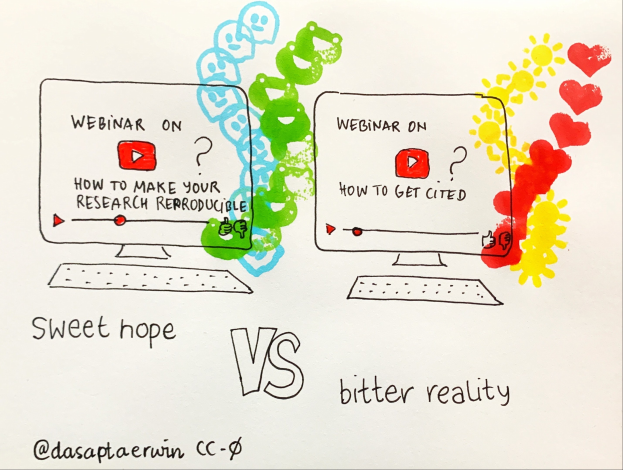 WEBINAR ON
?
HOW TO MAKE YOUR
RESEARCH REPRODUCIBLE
WEBINAR ON
?
HOW TO GET CITED
sweet hope
VS
bitter reality
@dasaptaerwin CC-0